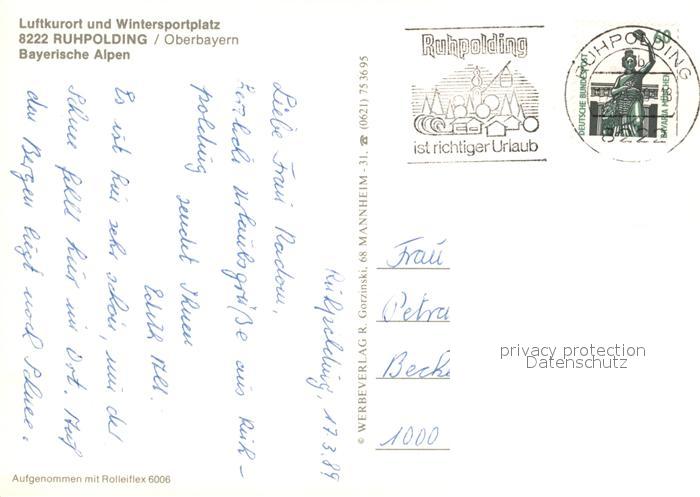 Luftkurort und Wintersportplatz
8222 RUHPOLDING / Oberbayern
Bayerische Alpen
Ruhpolding, 17.3.89
Liebe Frau Nadow,
herzliche Urlaubsgrüße aus Ruh-
polding sendet Ihnen
Edith Alt.
Es ist hier sehr schön, nur der
Schnee fehlt hier im Ort. Auf
den Bergen liegt noch Schnee.
Aufgenommen mit Rolleiflex 6006
© WERBEVERLAG R. Gorzinski, 68 MANNHEIM - 31, ☎ (0621) 75 36 95
Ruhpolding
ist richtiger Urlaub
RUHPOLDING
8222
60
DEUTSCHE BUNDESPOST
BAVARIA MÜNCHEN
Frau
Petra
Becke
1000
privacy protection
Datenschutz